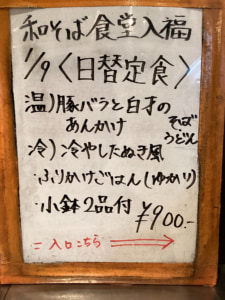 和そば食堂入福
1/9〈日替定食〉
温)豚バラと白才の
あんかけ
そば
うどん
冷)冷やしたぬき風
・ふりかけごはん(ゆかり)
・小鉢2品付 ¥900-
入口こちら